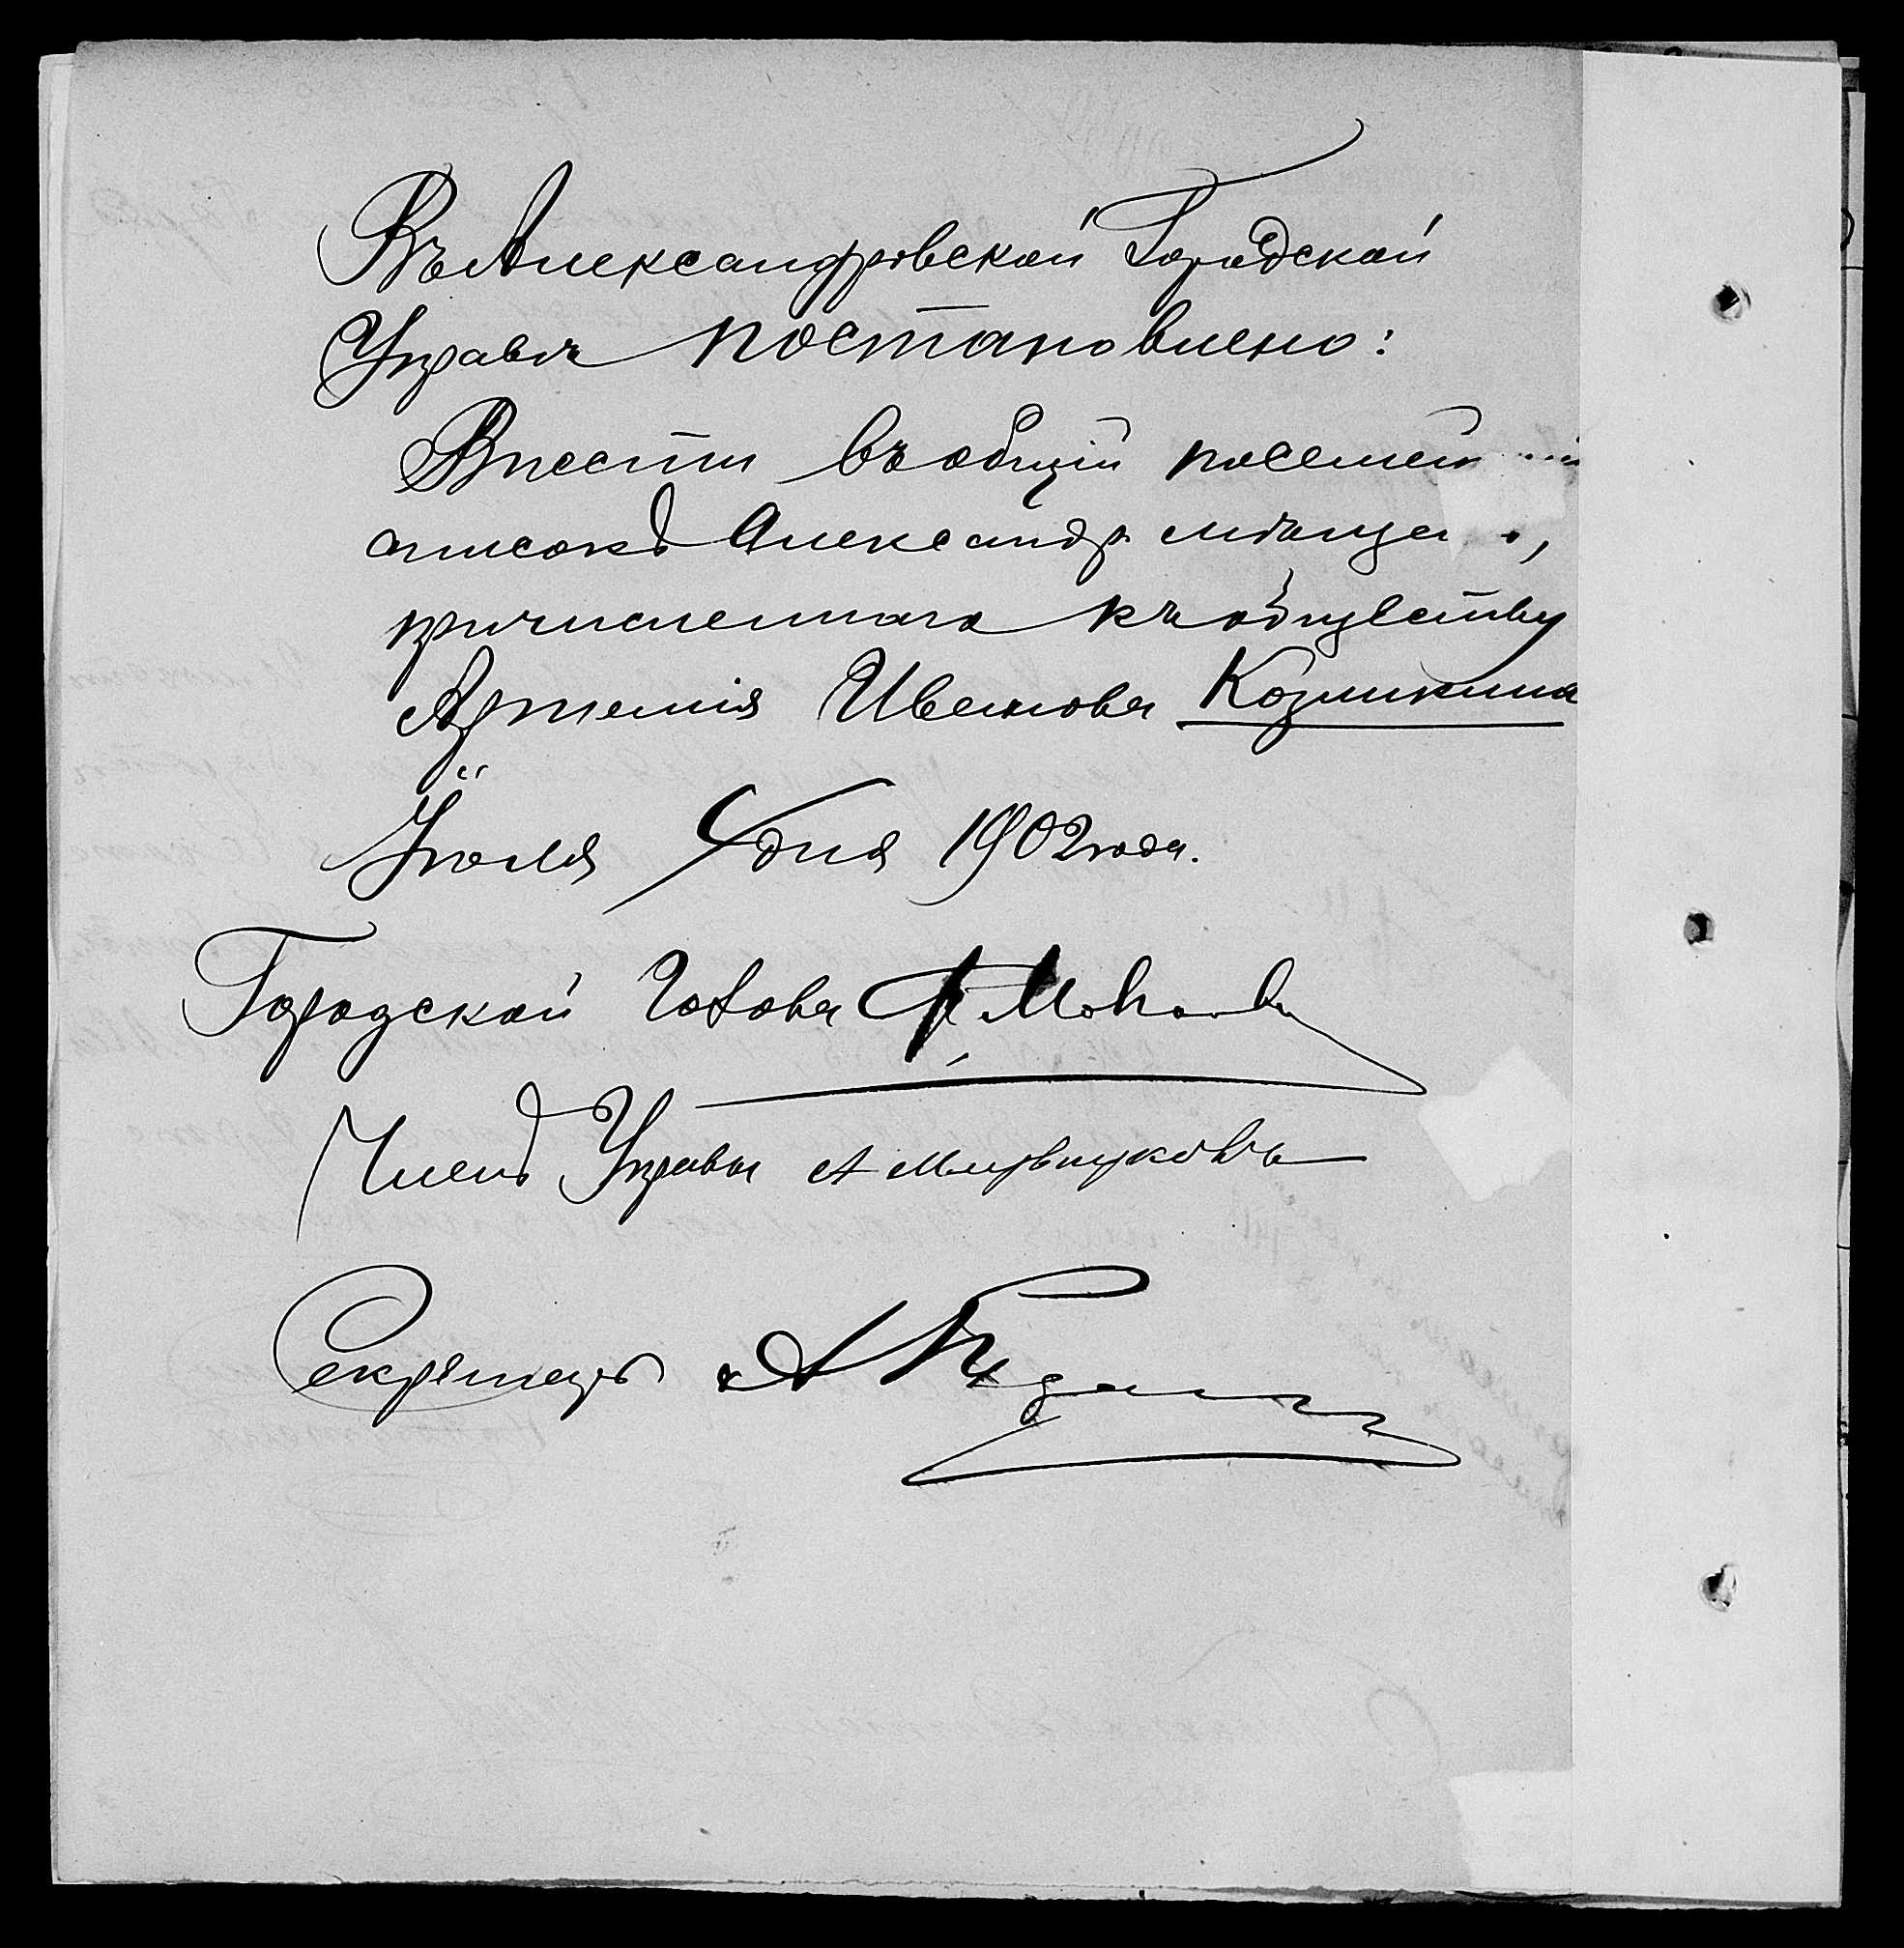 Въ Александровской Городской
Управѣ постановлено:
Внести въ общій посемей
списокъ Александр. мѣщан ,
причисленнаго къ обществу
Артемія Иванова Козликина
Іюля 4 дня 1902 года.
Городской Голова Ф
Членъ Управы А
Секретарь А